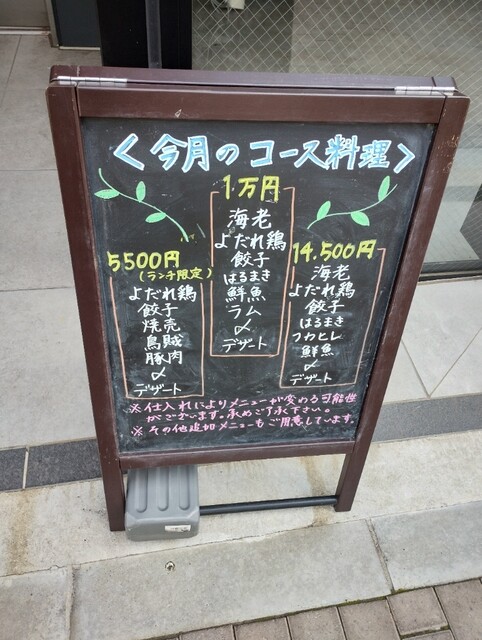 ＜今月のコース料理＞
5500円
(ランチ限定)
よだれ鶏
餃子
焼売
烏賊
豚肉
〆
デザート
1万円
海老
よだれ鶏
餃子
はるまき
鮮魚
ラム
〆
デザート
14,500円
海老
よだれ鶏
餃子
はるまき
フカヒレ
鮮魚
〆
デザート
※仕入れによりメニューが変わる可能性
がございます。承めご了承下さい。
※その他追加メニューもご用意しています。